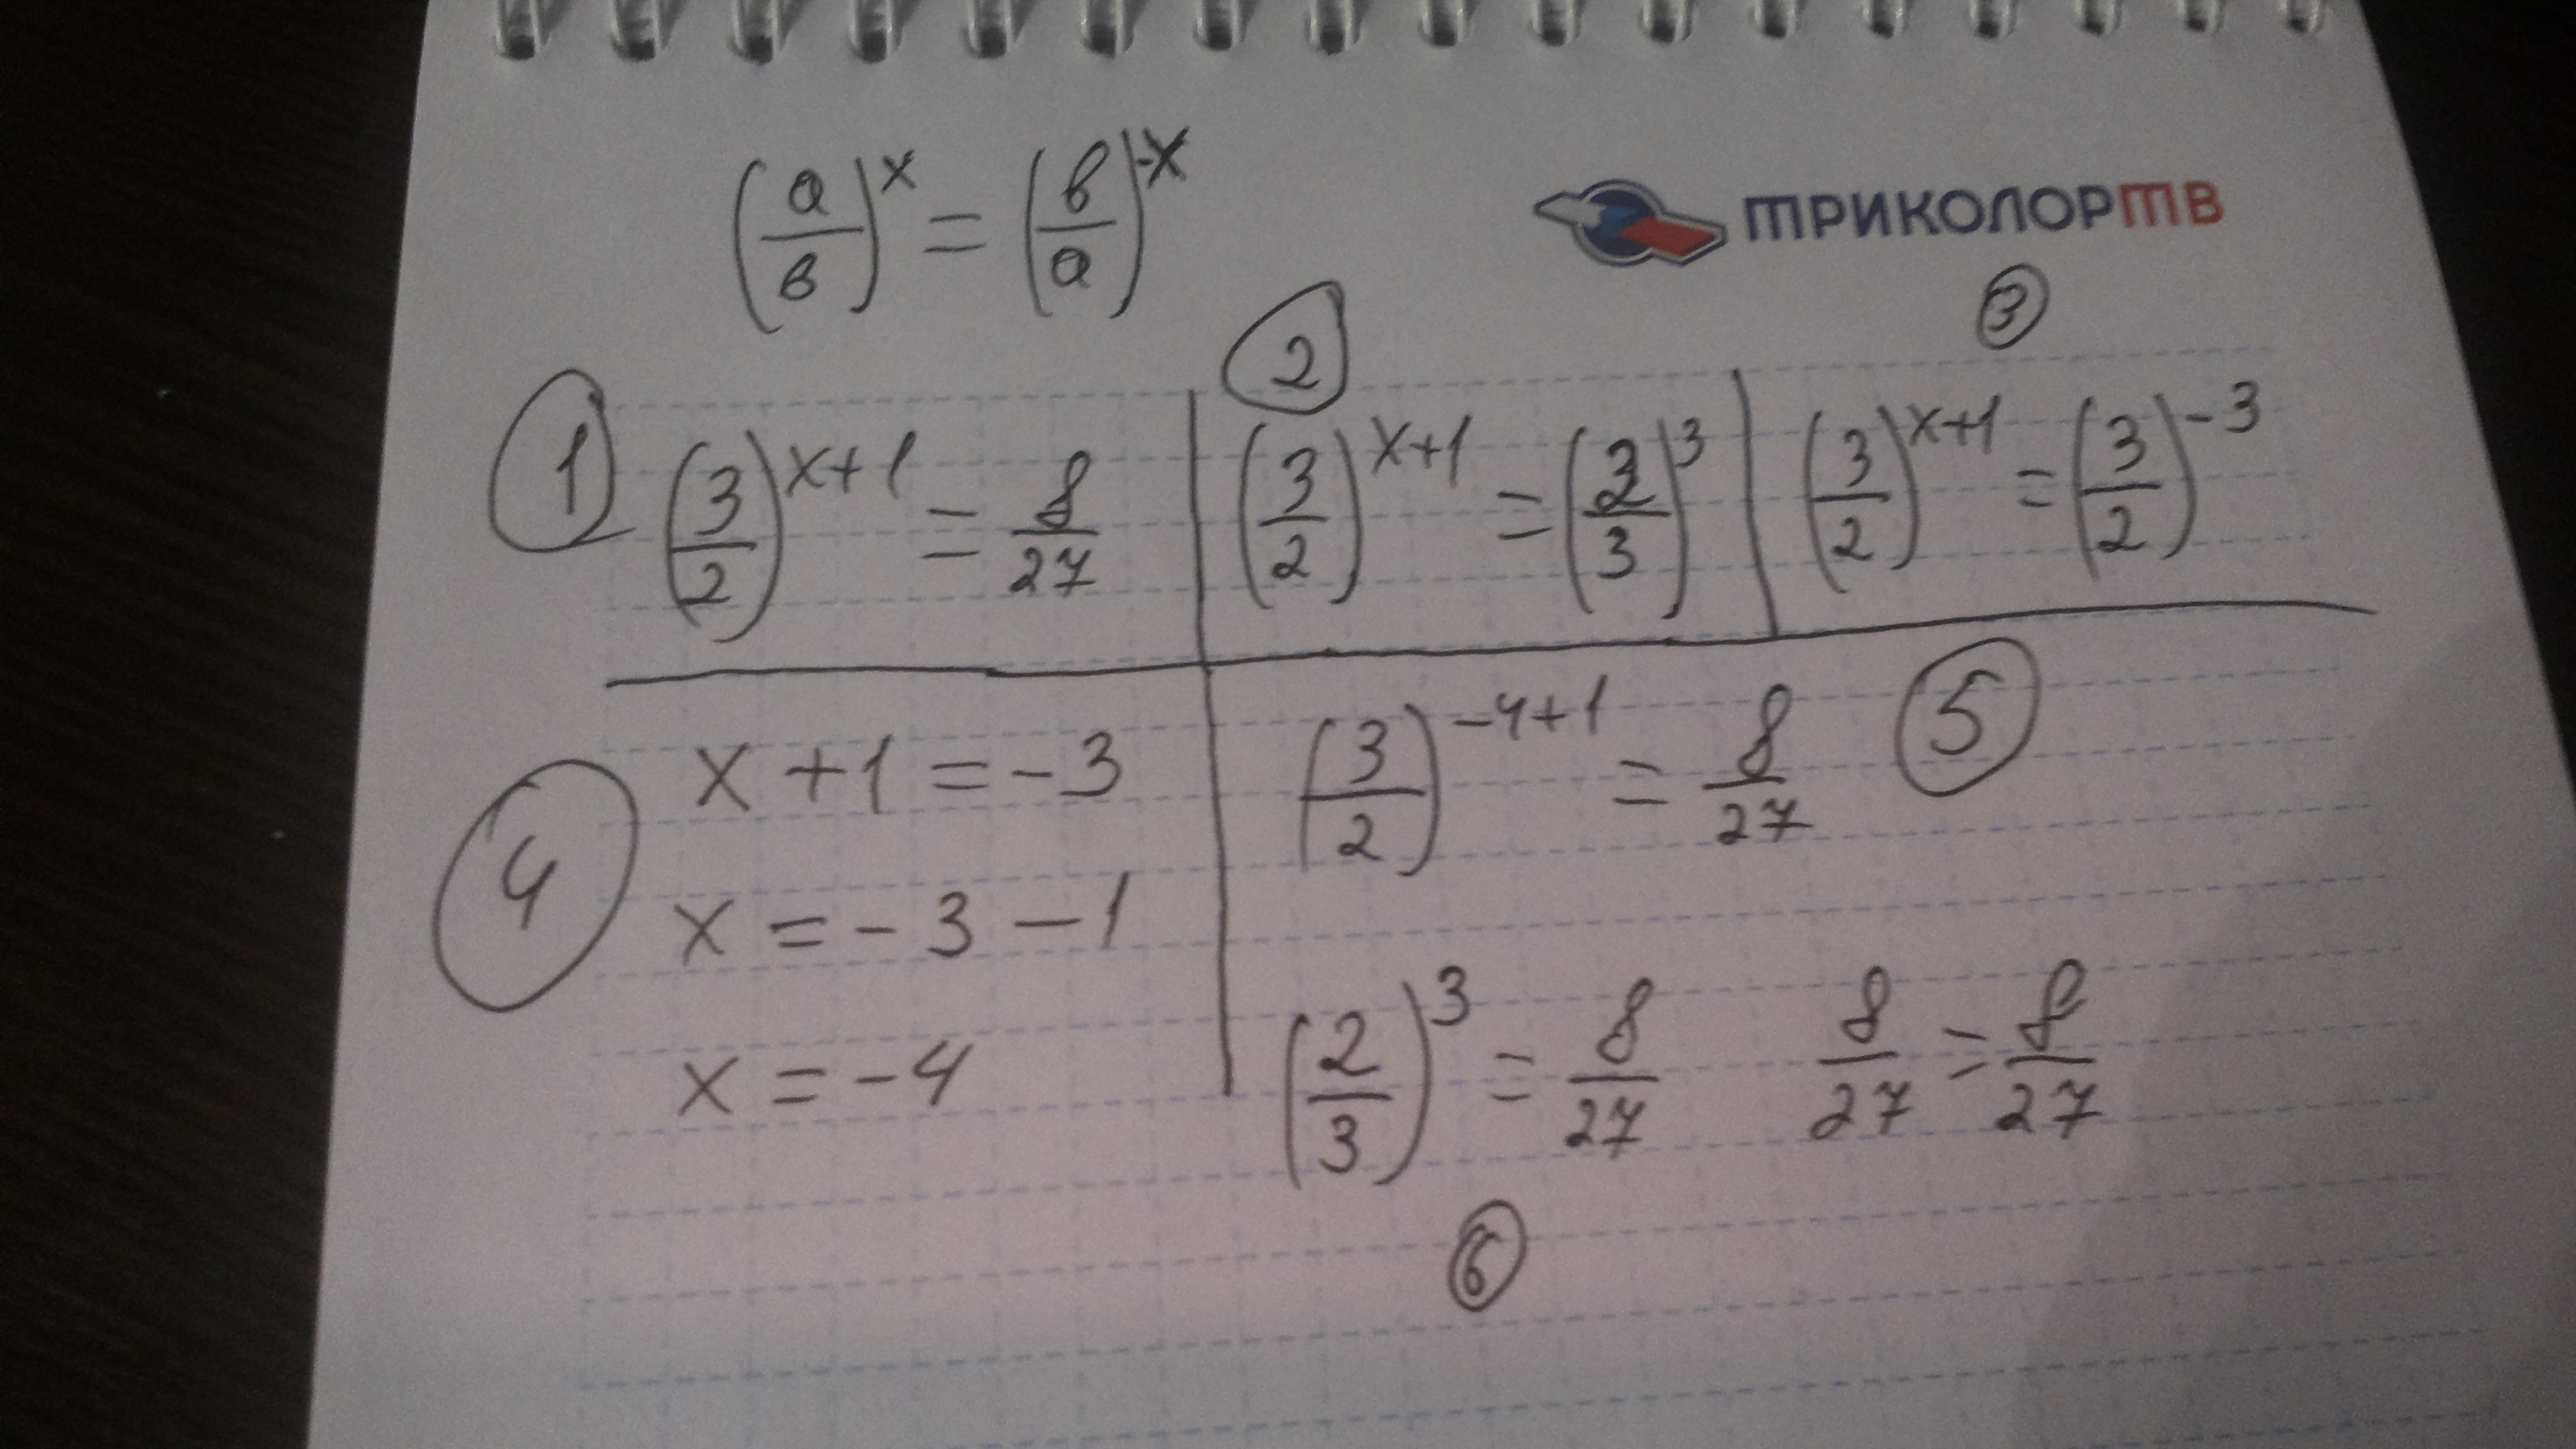 (a/в)^x = (в/a)^-x
ТРИКОЛОР ТВ
① (3/2)^x+1 = 8/27
② (3/2)^x+1 = (2/3)^3
③ (3/2)^x+1 = (3/2)^-3
④ x + 1 = - 3
x = - 3 - 1
x = - 4
⑤ (3/2)^-4+1 = 8/27
⑥ (2/3)^3 = 8/27 8/27 = 8/27